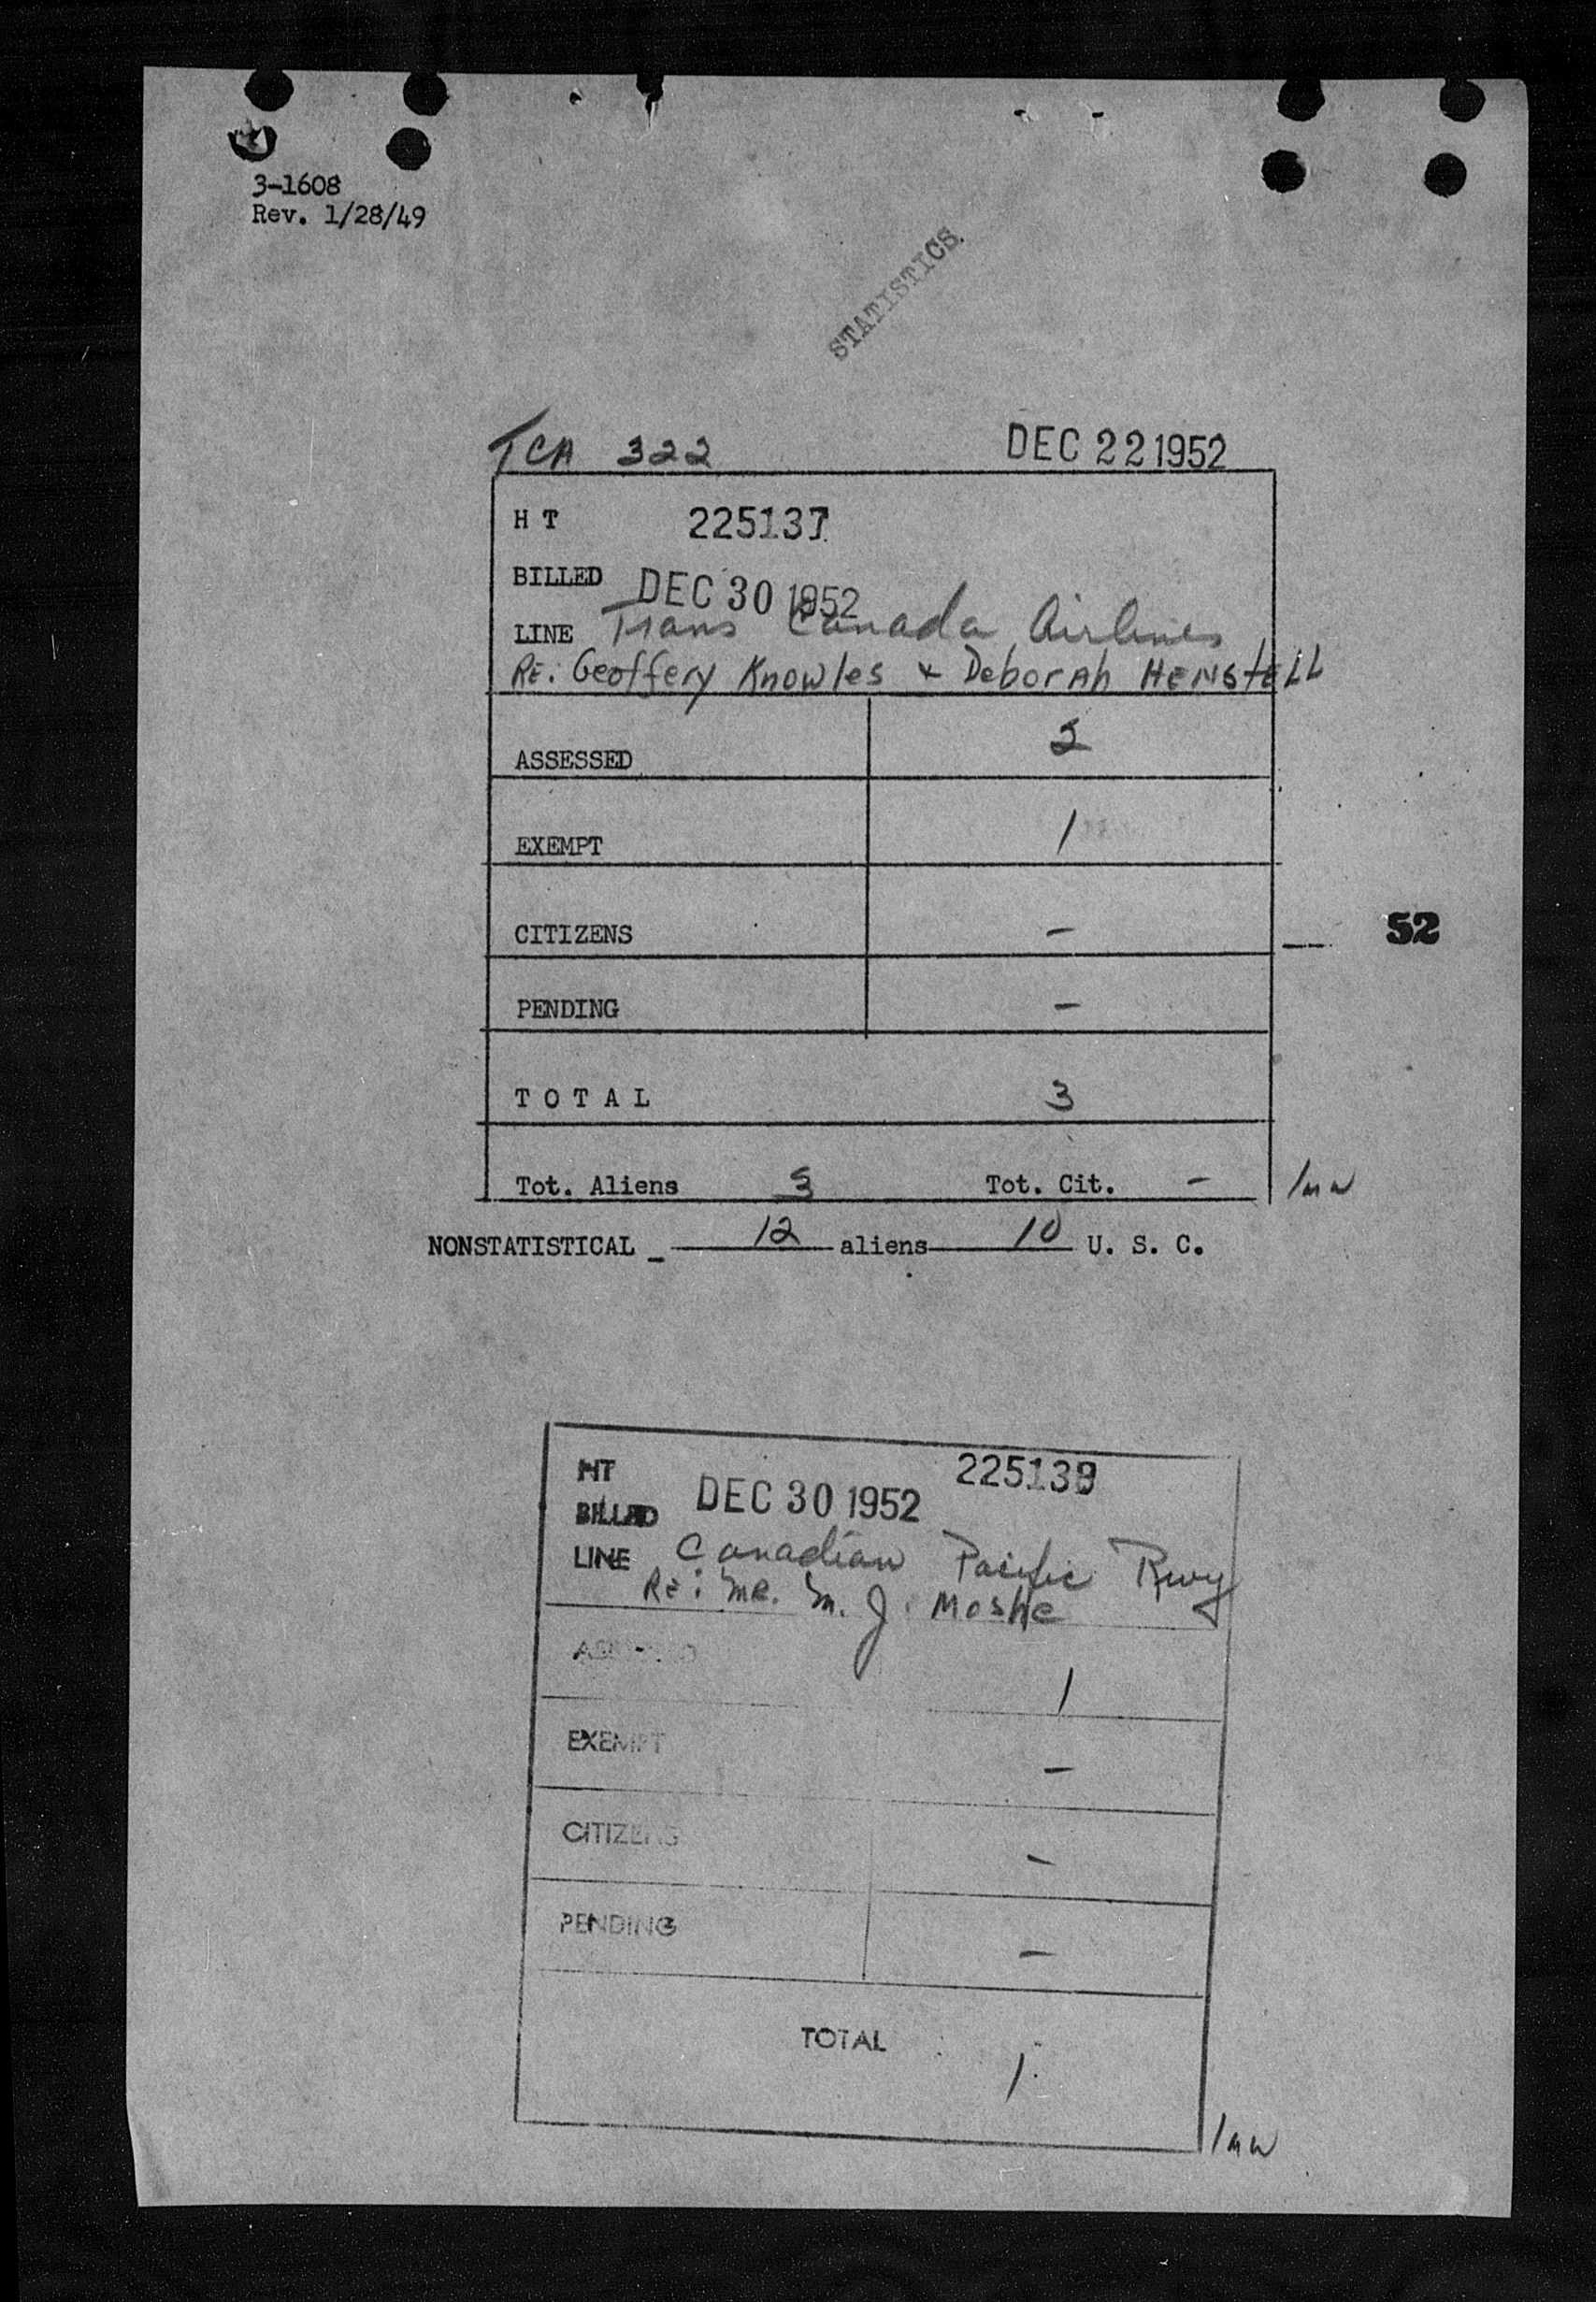 3-1608
Rev. 1/28/49
STATISTICS
TCA 322 DEC 22 1952
H T 225137
BILLED DEC 30 1952
LINE Trans Canada Airlines
RE: Geoffery Knowles & Deborah HENSTELL
ASSESSED 2
EXEMPT 1
CITIZENS -
52
PENDING -
T O T A L 3
Tot. Aliens 3 Tot. Cit. - /mw
NONSTATISTICAL - 12 aliens 10 U. S. C.
HT 225138
BILLED DEC 30 1952
LINE Canadian Pacific Rwy
RE: MR. M. J. Moshe
ASSESSED 1
EXEMPT -
CITIZENS -
PENDING -
TOTAL 1
/mw